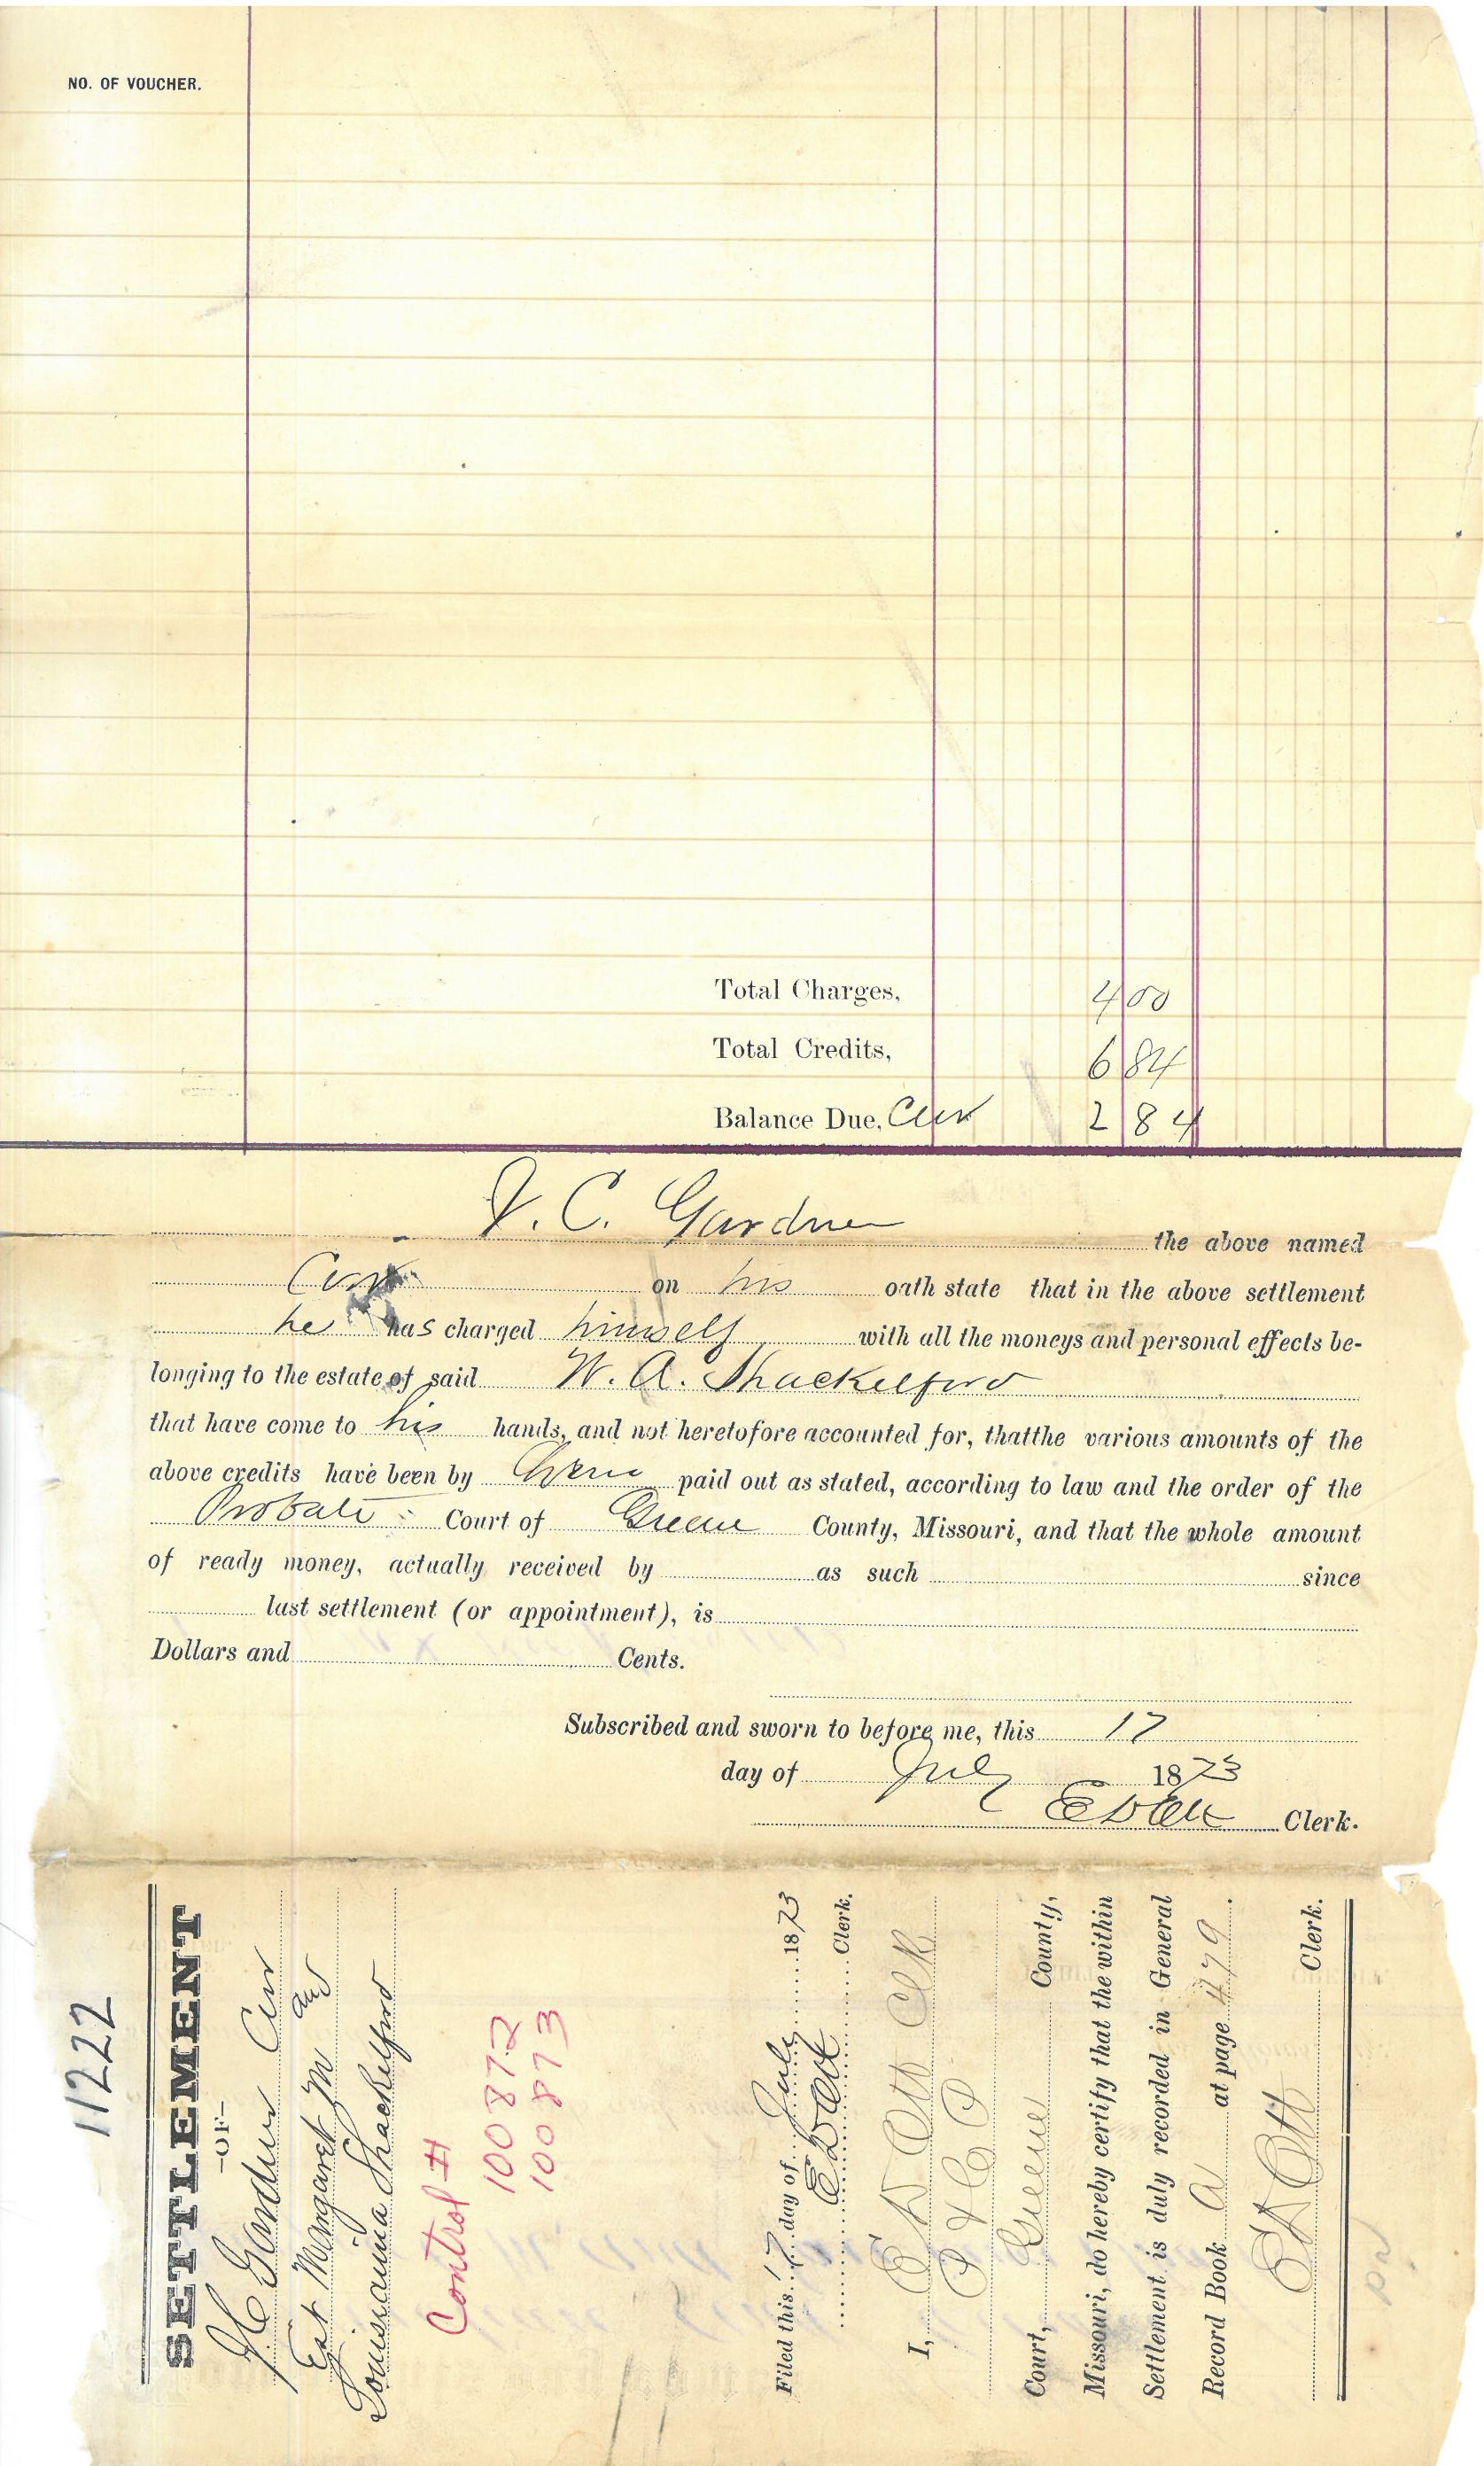 NO. OF VOUCHER.
Total Charges, 4 00
Total Credits, 6 84
Balance Due, Cur 2 84
J. C. Gardner the above named
Cur on his oath state that in the above settlement
he has charged himself with all the moneys and personal effects be-
longing to the estate of said W. A. Shackelford
that have come to his hands, and not heretofore accounted for, thatthe various amounts of the
above credits have been by paid out as stated, according to law and the order of the
Probate Court of Greene County, Missouri, and that the whole amount
of ready money, actually received by as such since
last settlement (or appointment), is
Dollars and Cents.
Subscribed and sworn to before me, this 17
day of July 1873
E D Ott Clerk.
11222
SETTLEMENT
-OF-
J C Gardner Cur
Est Margaret M and
Louisiania Shackelford
Control #
100872
100873
Filed this 17 day of July 1873
E D Ott Clerk.
I, E D Ott Clk
Court, Greene County,
Missouri, do hereby certify that the within
Settlement is duly recorded in General
Record Book A at page 479.
E D Ott Clerk.